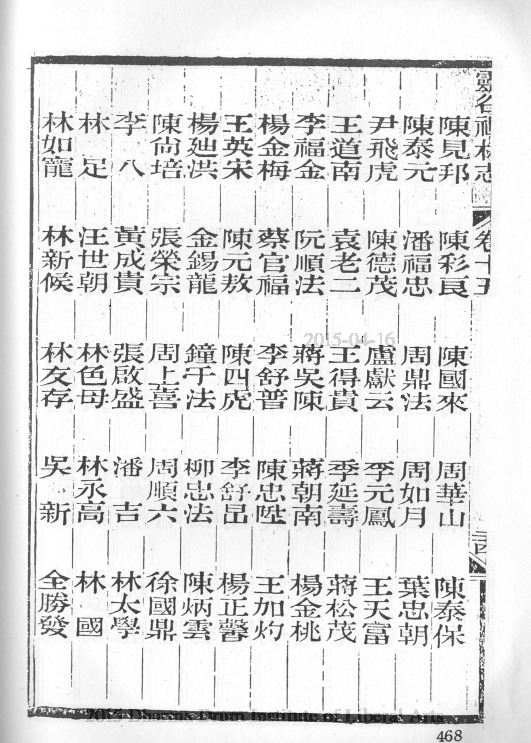 靈谷禪林志 卷十五 三四
陳見邦 陳彩良 陳國來 周華山 陳泰保
陳泰元 潘福忠 周鼎法 周如月 葉忠朝
尹飛虎 陳德茂 盧獻云 李元鳳 王天富
王道南 袁老二 王得貴 季延壽 蔣松茂
李福金 阮順法 蔣吳陳 蔣朝南 楊金桃
楊金梅 蔡官福 李舒普 陳忠陞 王加灼
王英宋 陳元敖 陳四虎 李舒昆 楊正馨
楊廸洪 金錫龍 鐘于法 柳忠法 陳炳雲
陳尙培 張榮宗 周上喜 周順六 徐國鼎
李八 黃成貴 張啟盛 潘吉 林太學
林足 汪世朝 林色母 林永高 林國
林如寵 林新候 林友存 吳新 全勝發
2015-04-16
Drum Institute of Liberal Arts
468